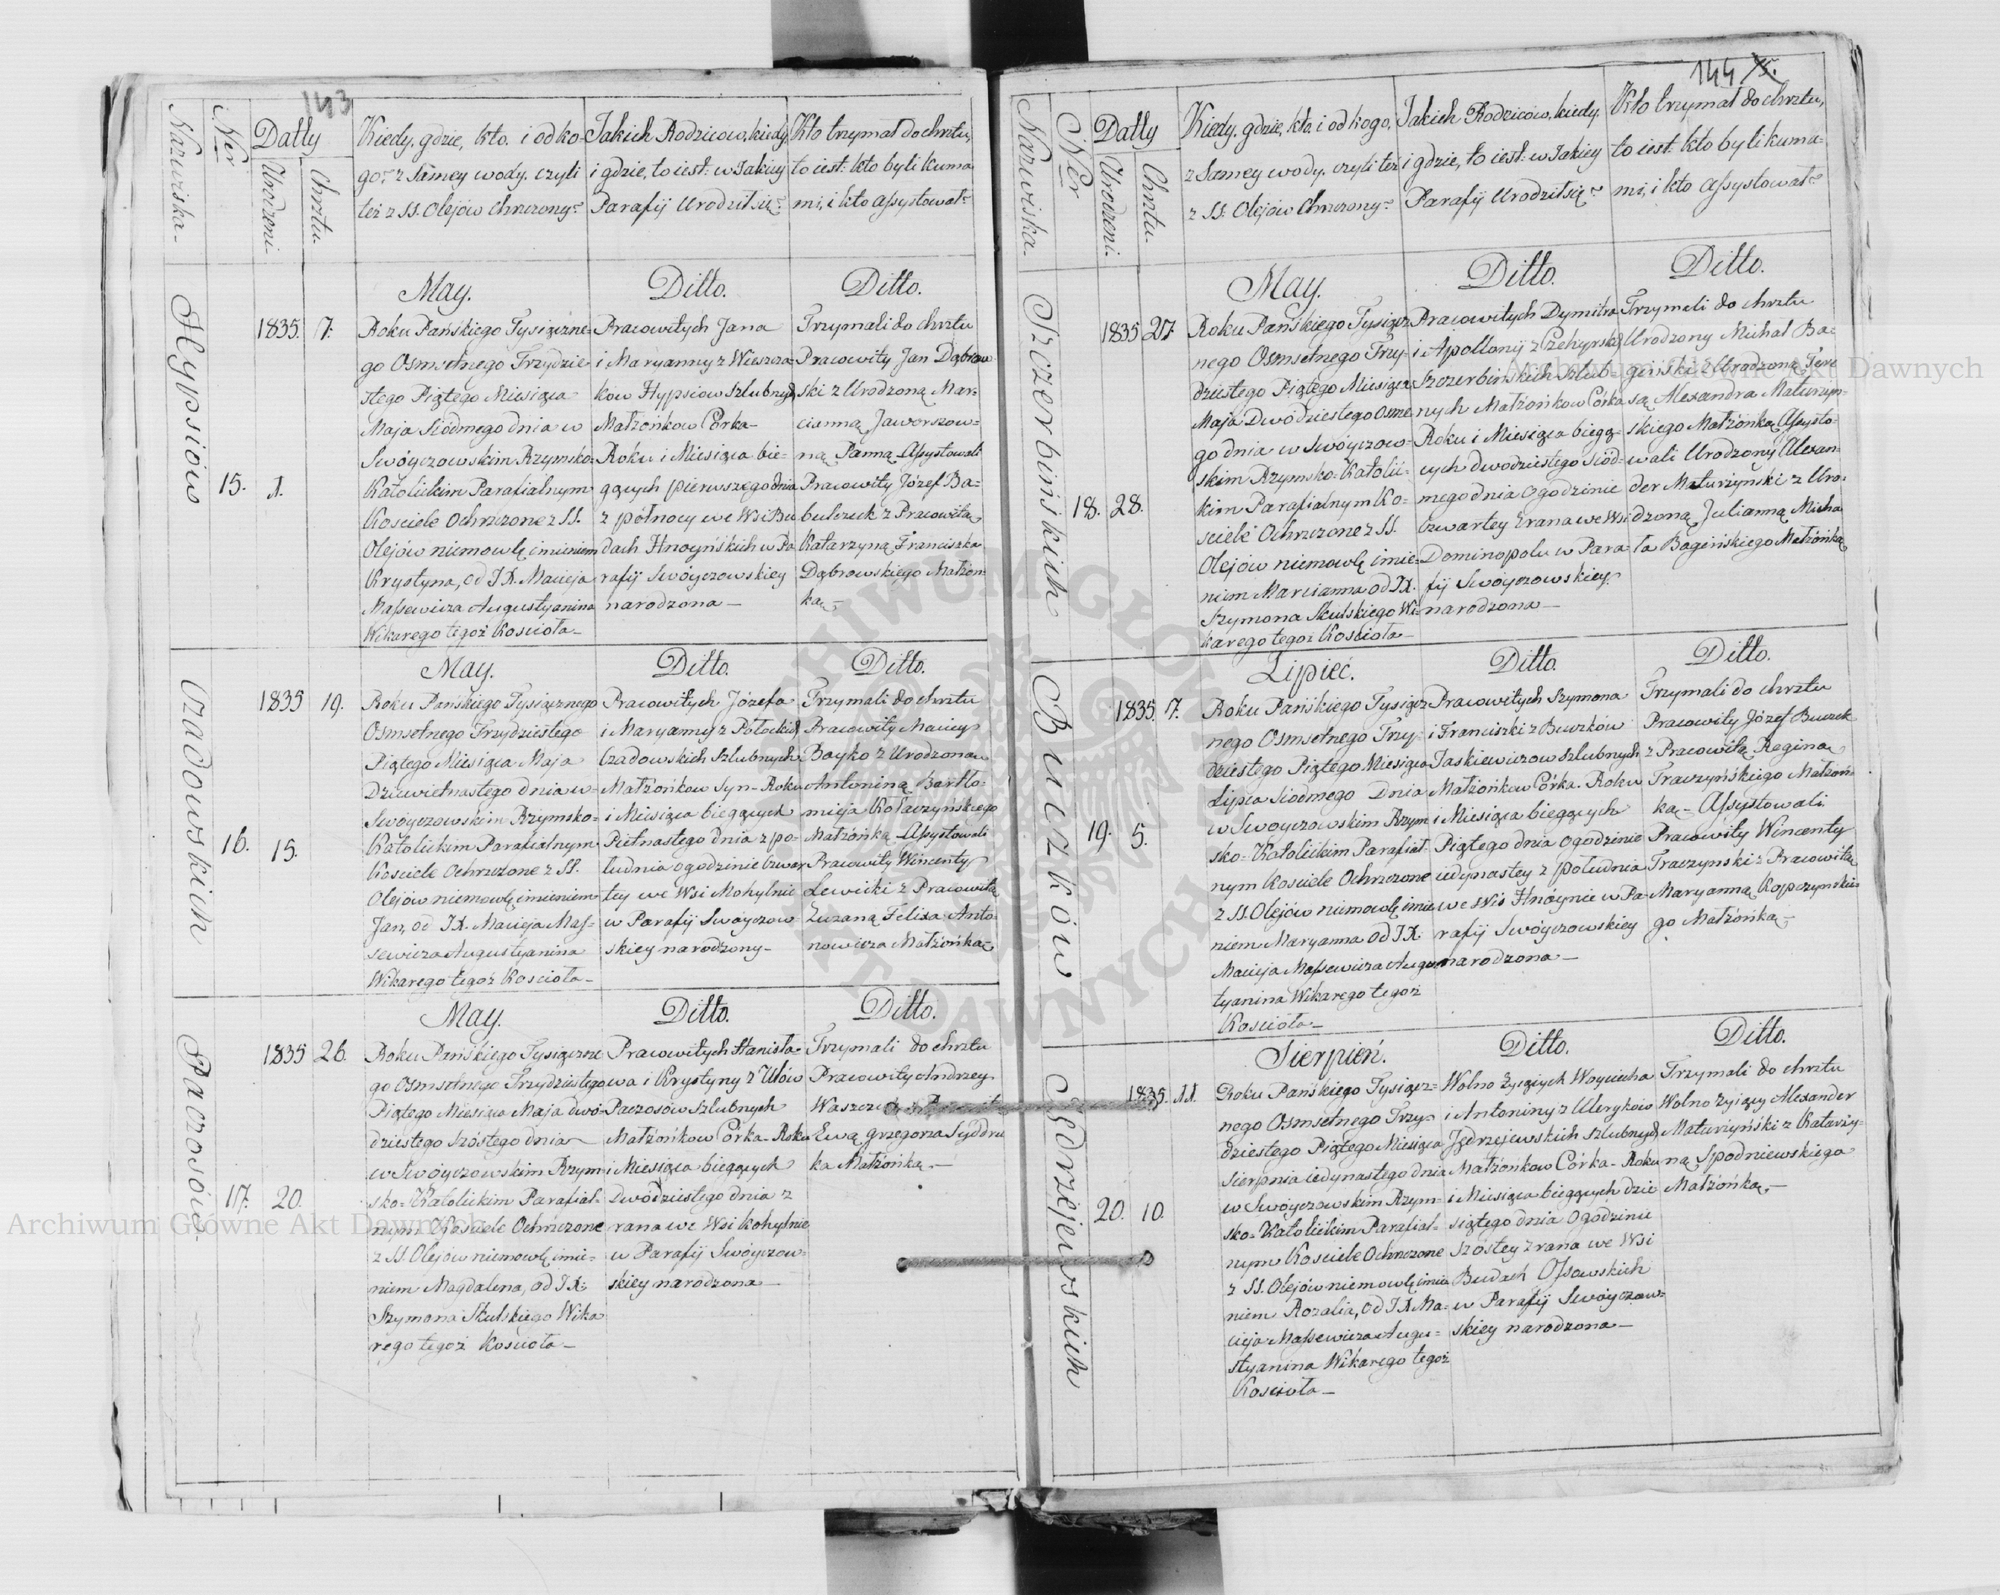 143
Nazwiska.
Ner
Datty
Urodzeni.
Chrztu.
Kiedy, gdzie, kto, i od ko-
go? z Samey wody, czyli
też z SS. Olejów Chrzczony?
Jakich Rodziców, kiedy,
i gdzie, to iest: w Jakiey
Parafij Urodził się?
Kto trzymał do chrztu,
to iest: kto byli kuma-
mi, i kto assystował?
Hypsiów
15.
1.
1835.
7.
May.
Roku Pańskiego Tysiączne-
go Osmsetnego Trzydzie-
stego Piątego Miesiąca
Maja Siódmego dnia w
Swóyczowskim Rzymsko-
Katolickim Parafialnym
Kosciele Ochrzczone z SS.
Olejów niemowlę imieniem
Krystyna, od J.X. Macieja
Massewicza Augustyanina
Wikarego tegoż Kościoła
Ditto.
Pracowitych Jana
i Maryanny z Wieszcza-
ków Hypsiów Szlubnych
Małżonków Córka
Roku i Miesiąca bie-
gących pierwszego dnia
z północy we Wsi Bu
dach Hnoyńskich w Pa
rafij Swóyczowskiey
narodzona
Ditto.
Trzymali do chrztu
Pracowity Jan Dąbrow
ski z Urodzoną Mar-
cianną Jaworszow-
ną Panną Assystowali
Pracowity Józef Ba-
bulczuk z Pracowitą
Katarzyną Franciszka
Dąbrowskiego Małżon-
ką
Czadowskich
16.
15.
1835
19.
May.
Roku Pańskiego Tysiącznego
Osmsetnego Trzydziestego
Piątego Miesiąca Maja
Dziewietnastego dnia w
Swóyczowskim Rzymsko-
Katolickim Parafialnym
Kosciele Ochrzczone z SS.
Olejów niemowlę imieniem
Jan, od J.X. Macieja Mas-
sewicza Augustyanina
Wikarego tegoż Kościoła
Ditto.
Pracowitych Józefa
i Maryanny z Potockich
Czadowskich Szlubnych
Małżonków Syn Roku
i Miesiąca biegących
Pietnastego dnia z po-
łudnia o godzinie czwar
tey we Wsi Mohylnie
w Parafij Swóyczow
skiey narodzony
Ditto.
Trzymali do chrztu
Pracowity Maciey
Boyko z Urodzoną
Antoniną Bartło-
mieja Kołaczyńskiego
Małżonką Assystowali
Pracowity Wincenty
Lewicki z Pracowitą
Zuzaną Felixa Anto-
nowicza Małżonką
Paczosów
17.
20.
1835
26.
May.
Roku Pańskiego Tysiączne
go Osmsetnego Trzydziestego
Piątego Miesiąca Maja dwó-
dziestego szóstego dnia
w Swóyczowskim Rzym
sko-Katolickim Parafial-
nym Kosciele Ochrzczone
z SS. Olejów niemowlę imie-
niem Magdalena, od J.X.
Szymona Skulskiego Wika
rego tegoż Kościoła
Ditto.
Pracowitych Stanisła-
wa i Krystyny z Ułów
Paczosów Szlubnych
Małżonków Córka Roku
i Miesiąca biegących
Dwódziestego dnia z
rana we Wsi Mohylnie
w Parafij Swóyczow-
skiey narodzona
Ditto.
Trzymali do chrztu
Pracowity Andrzey
Waszczuk
Ewą Grzegorza Syddru
ka Małżonką
144
Nazwiska.
Ner
Datty
Urodzeni.
Chrztu.
Kiedy, gdzie, kto, i od kogo,
z Samey wody, czyli też
z SS. Olejów Chrzczony?
Jakich Rodziców, kiedy,
i gdzie, to iest: w Jakiey
Parafij Urodził się?
Kto trzymał do chrztu,
to iest: kto byli kuma-
mi, i kto assystował?
Szczerbińskich
18.
28.
1835
27
May.
Roku Pańskiego Tysiącz
nego Osmsetnego Trzy-
dziestego Piątego Miesiąca
Maja Dwódziestego osme
go dnia w Swóyczow-
skim Rzymsko-Katolic-
kim Parafialnym Ko-
sciele Ochrzczone z SS.
Olejów niemowlę imie-
niem Marcianna od J.X.
Szymona Skulskiego Wi-
karego tegoż Kościoła
Ditto.
Pracowitych Dymitra
i Apollonij z
Szczerbińskich Szlub-
nych Małżonków Córka
Roku i Miesiąca biegą-
cych dwódziestego siód-
mego dnia o godzinie
czwartey z rana we Wsi
Dominopolu w Para
fij Swóyczowskiey
narodzona
Ditto.
Trzymali do chrztu
Urodzony Michał Ba-
giński z Urodzoną Tere
są Alexandra Maturzyn-
skiego Małżonką Assysto-
wali Urodzony Alexan-
der Maturzyński z Uro-
dzoną Julianną Micha
ła Bagińskiego Małżonką
Buczków
19.
5.
1835.
7.
Lipieć.
Roku Pańskiego Tysiącz
nego Osmsetnego Trzy-
dziestego Piątego Miesiąca
Lipca Siodmego Dnia
w Swoyczowskim Rzym
sko-Katolickim Parafial-
nym Kosciele Ochrzczone
z SS. Olejów niemowlę imie
niem Maryanna od J.X.
Macieja Massewicza Augus
tyanina Wikarego tegoż
Kościoła
Ditto.
Pracowitych Szymona
i Franciszki z Buczków
Jaskiewiczów Szlubnych
Małżonków Córka. Roku
i Miesiąca biegących
Piątego dnia o godzinie
iedynastey z południa
we Wsi Hnóynie w Pa-
rafij Swóyczowskiey
narodzona
Ditto.
Trzymali do chrztu
Pracowity Józef Buczek
z Pracowitą Reginą
Traczyńskiego Małżon-
ką Assystowali
Pracowity Wincenty
Traczynski z Pracowitą
Maryanną Kopczynskie
go Małżonką
Jędrzejewskich
20.
10.
1835.
11.
Sierpień.
Roku Pańskiego Tysiącz-
nego Osmsetnego Trzy-
dziestego Piątego Miesiąca
Sierpnia iedynastego dnia
w Swoyczowskim Rzym-
sko-Katolickim Parafial-
nym Kosciele Ochrzczone
z SS. Olejów niemowlę imie
niem Rozalia, od J.X. Ma-
cieja Massewicza Augu-
styanina Wikarego tegoż
Kościoła
Ditto.
Wolno Zyiących Woyciecha
i Antoniny z Uleryków
Jędrzejewskich Szlubnych
Małżonków Córka Roku
i Miesiąca biegących dzie
siątego dnia o godzinie
Szóstey z rana we Wsi
Budach Ossowskich
w Parafij Swóyczow-
skiey narodzona
Ditto.
Trzymali do chrztu
Wolno Zyiący Alexander
Maturzyński z Katarzy-
ną Spodniewskiego
Małżonką
Archiwum Główne Akt Dawnych
Archiwum Główne Akt Dawnych
ARCHIWUM GŁÓWNE AKT DAWNYCH